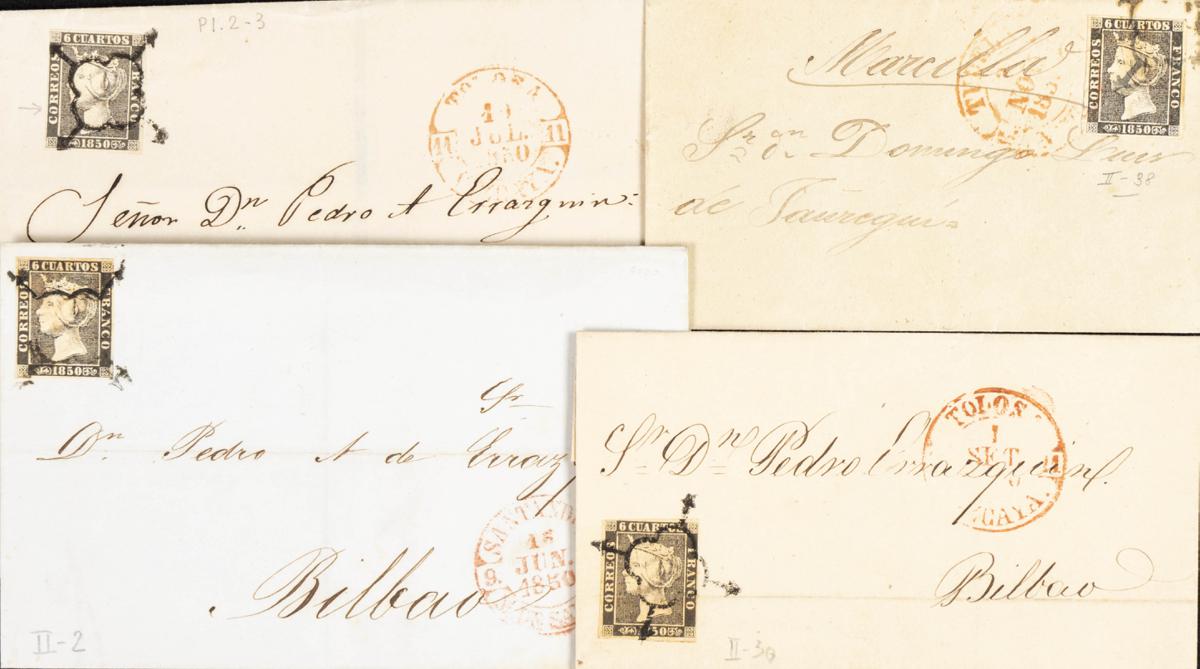 P1.2-3
6 CUARTOS
CORREOS
FRANCO
1850
TOLOSA
11
JUL.
11
Señor Dn. Pedro A Errazquin
6 CUARTOS
CORREOS
FRANCO
1850
Marcilla
NO
185
Domingo Luis
II-38
de Jauregui
6 CUARTOS
CORREOS
FRANCO
1850
Sr
Dn. Pedro A de Erraz
SANTANDE
16
JUN.
1850
9.
Bilbao
II-2
TOLOS
1
SET.
CAYA.
Sr. Dn. Pedro Errazquin.
Bilbao
6 CUARTOS
CORREOS
FRANCO
1850
II-30